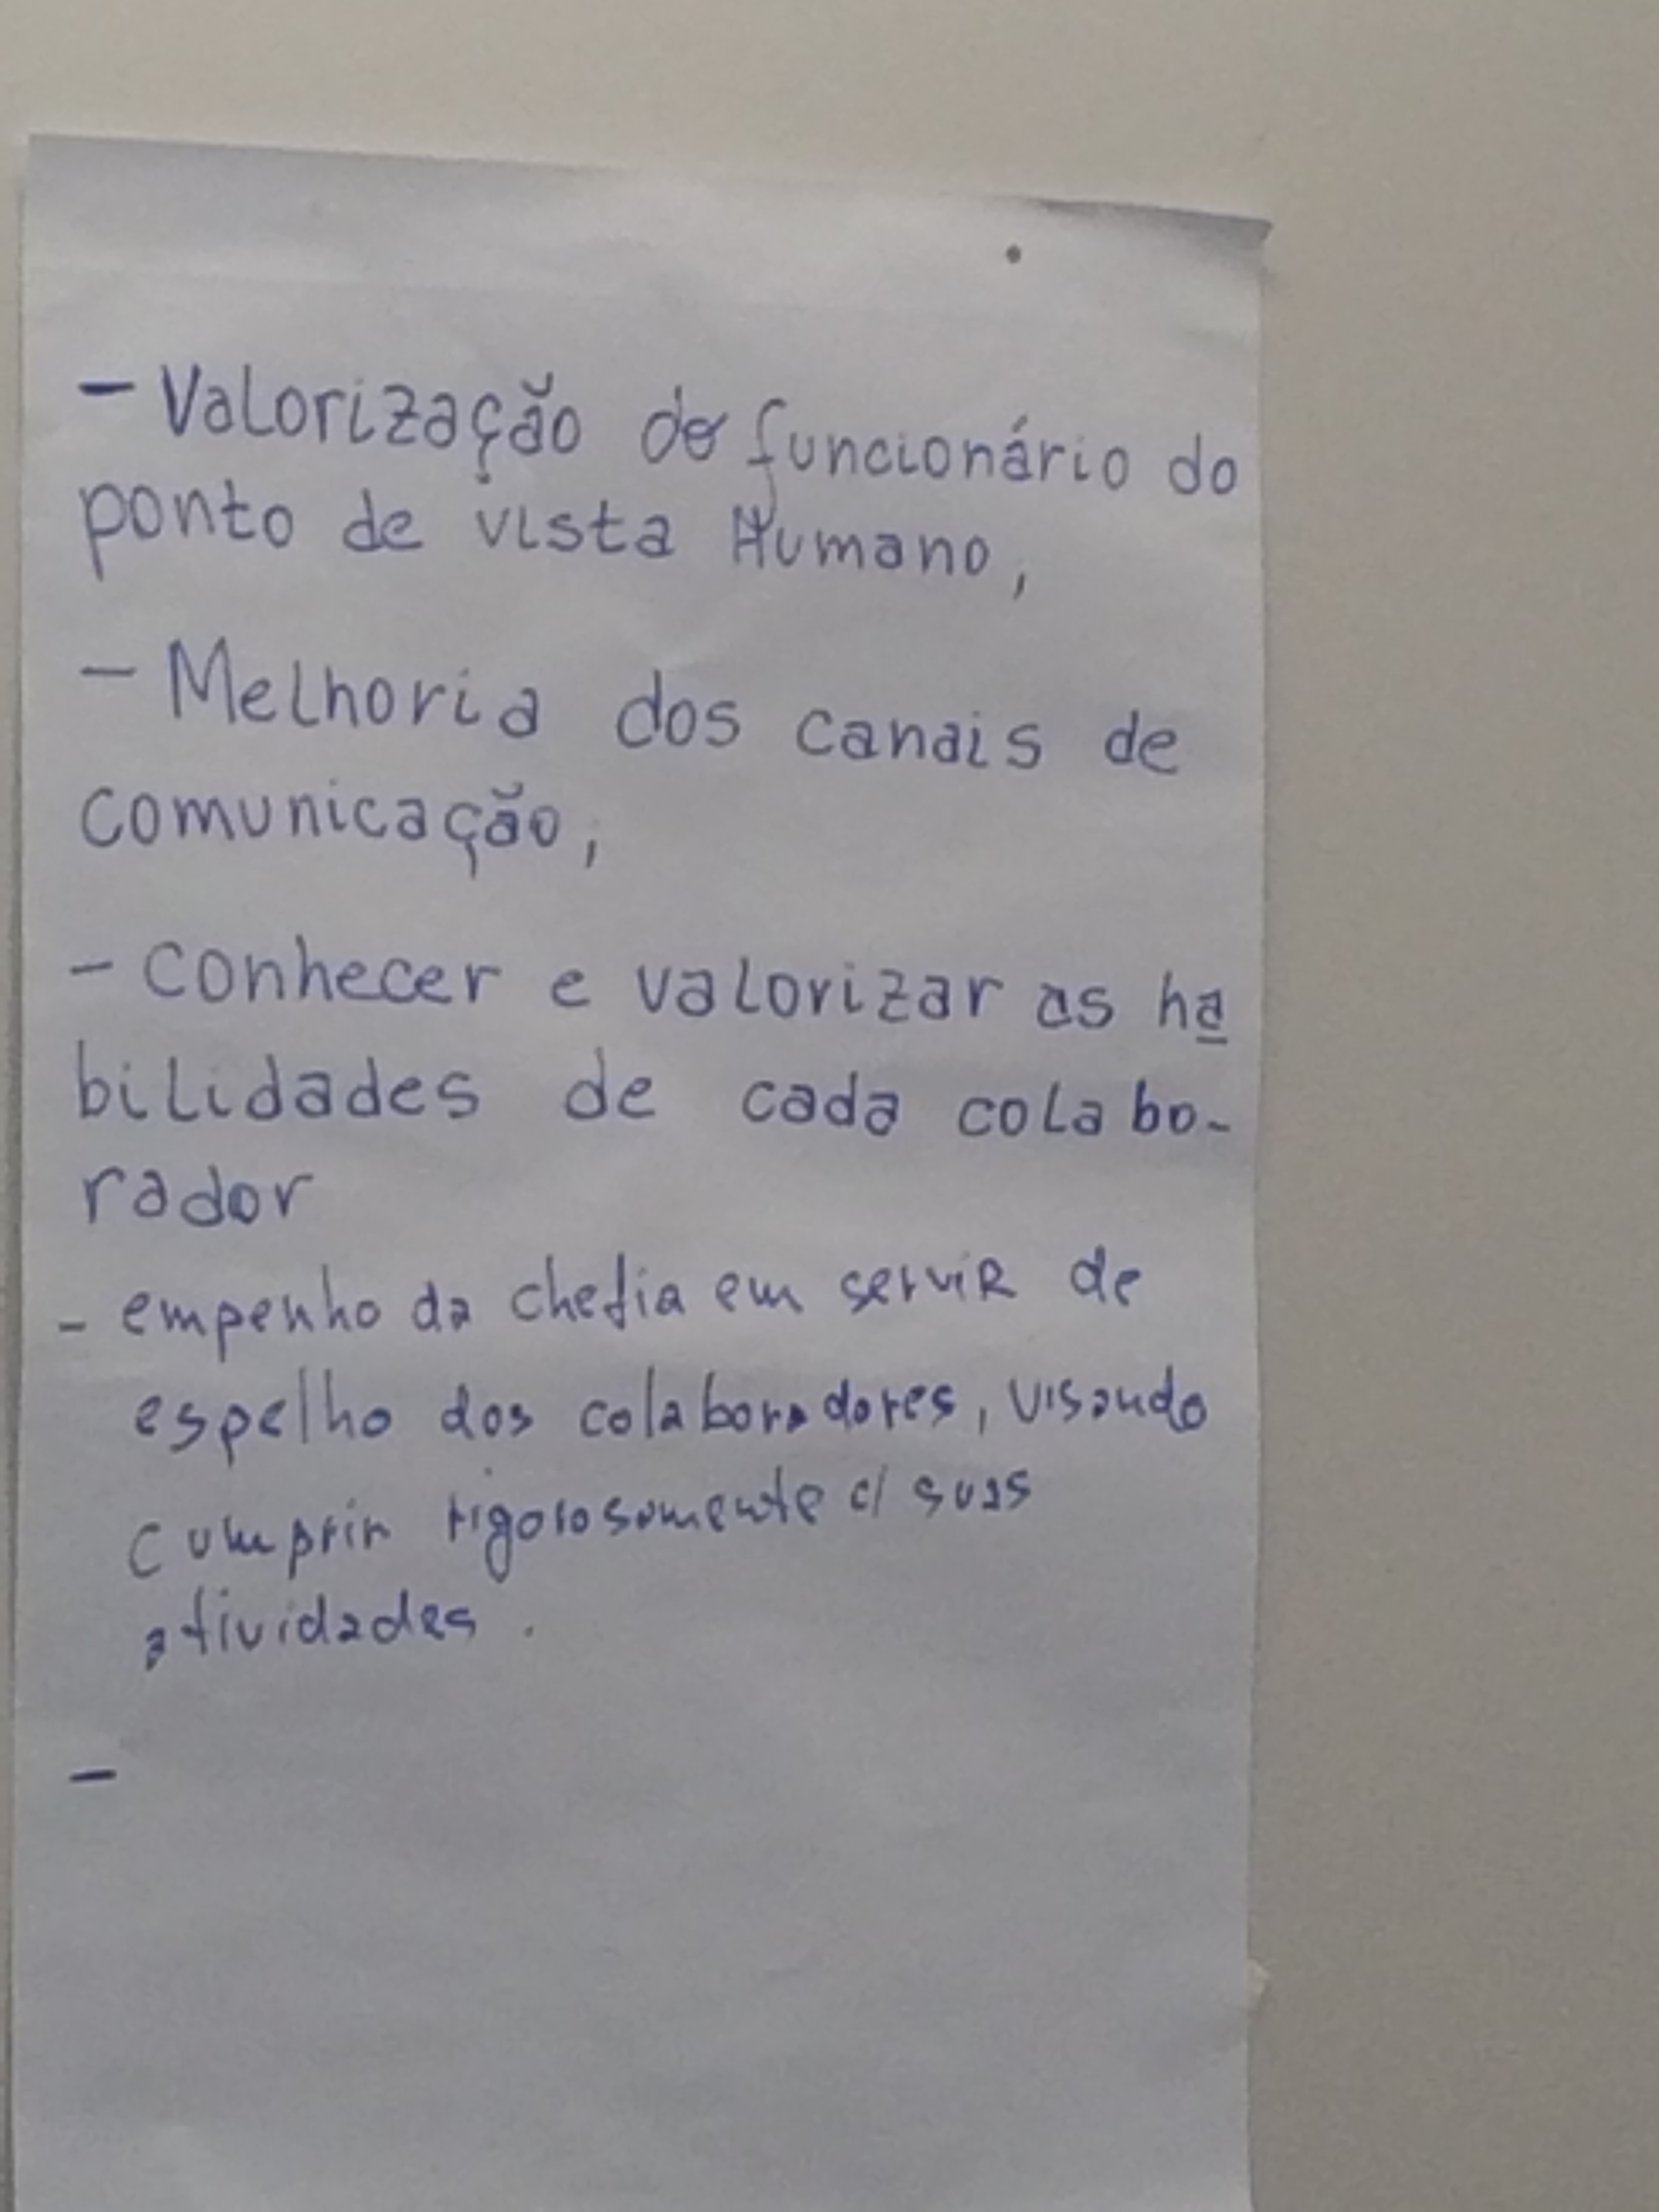 - Valorização do funcionário do
ponto de vista Humano,
- Melhoria dos canais de
comunicação,
- conhecer e valorizar as ha
bilidades de cada colabo-
rador
- empenho da chefia em servir de
espelho dos colaboradores, visando
cumprir rigorosamente c/ suas
atividades.
-